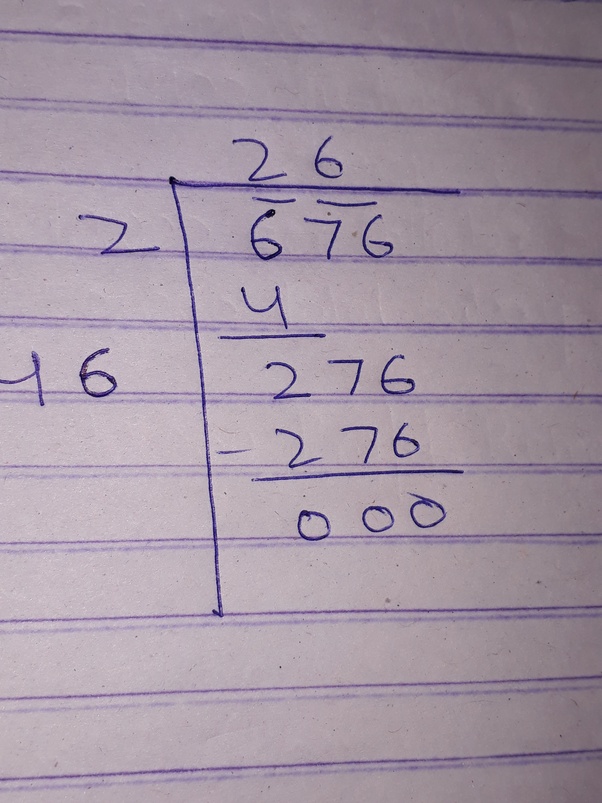 26
2 676
4
46 276
- 276
000